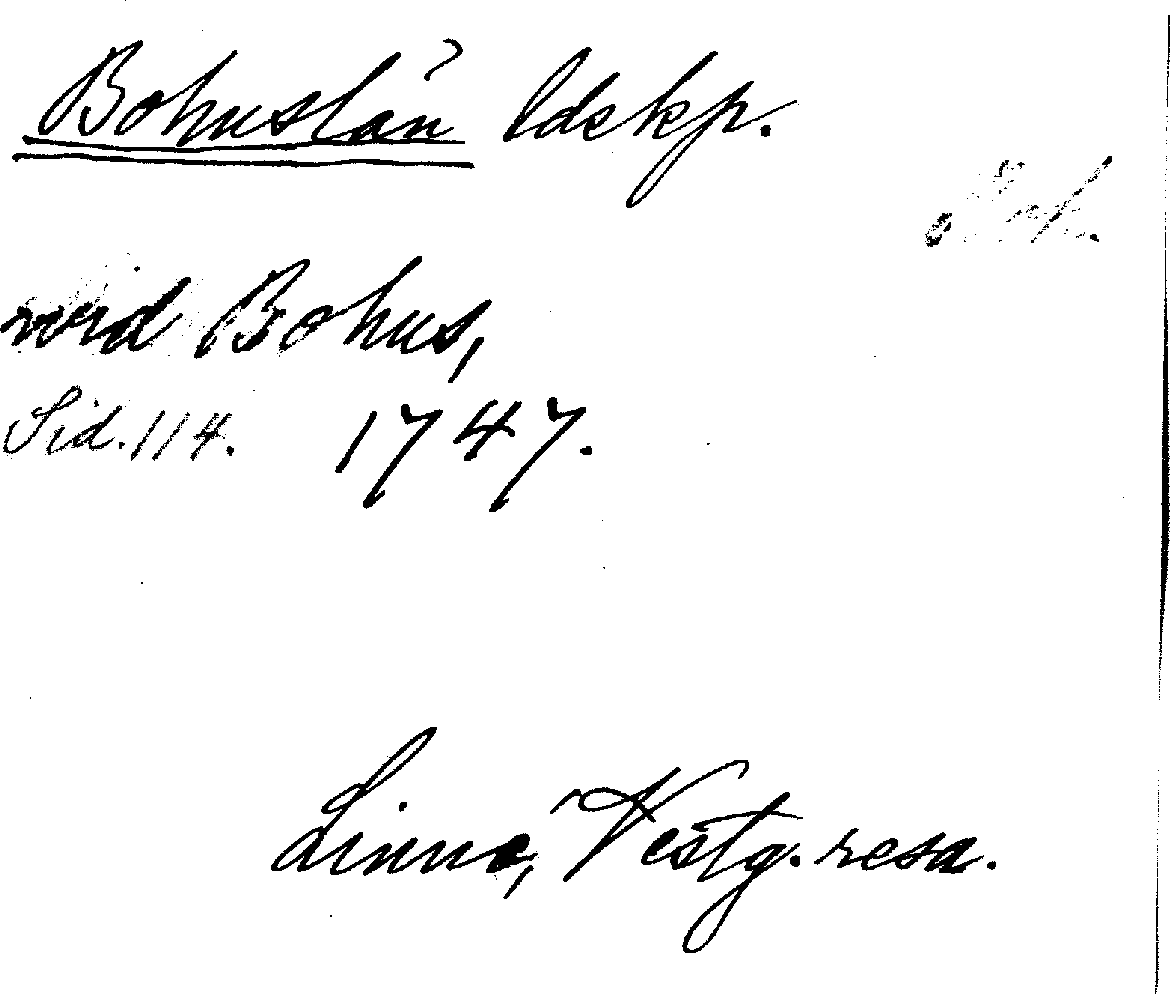 Bohuslän ldskp.
vid Bohus,
Sid. 114. 1747.
Linné, Vestg. resa.